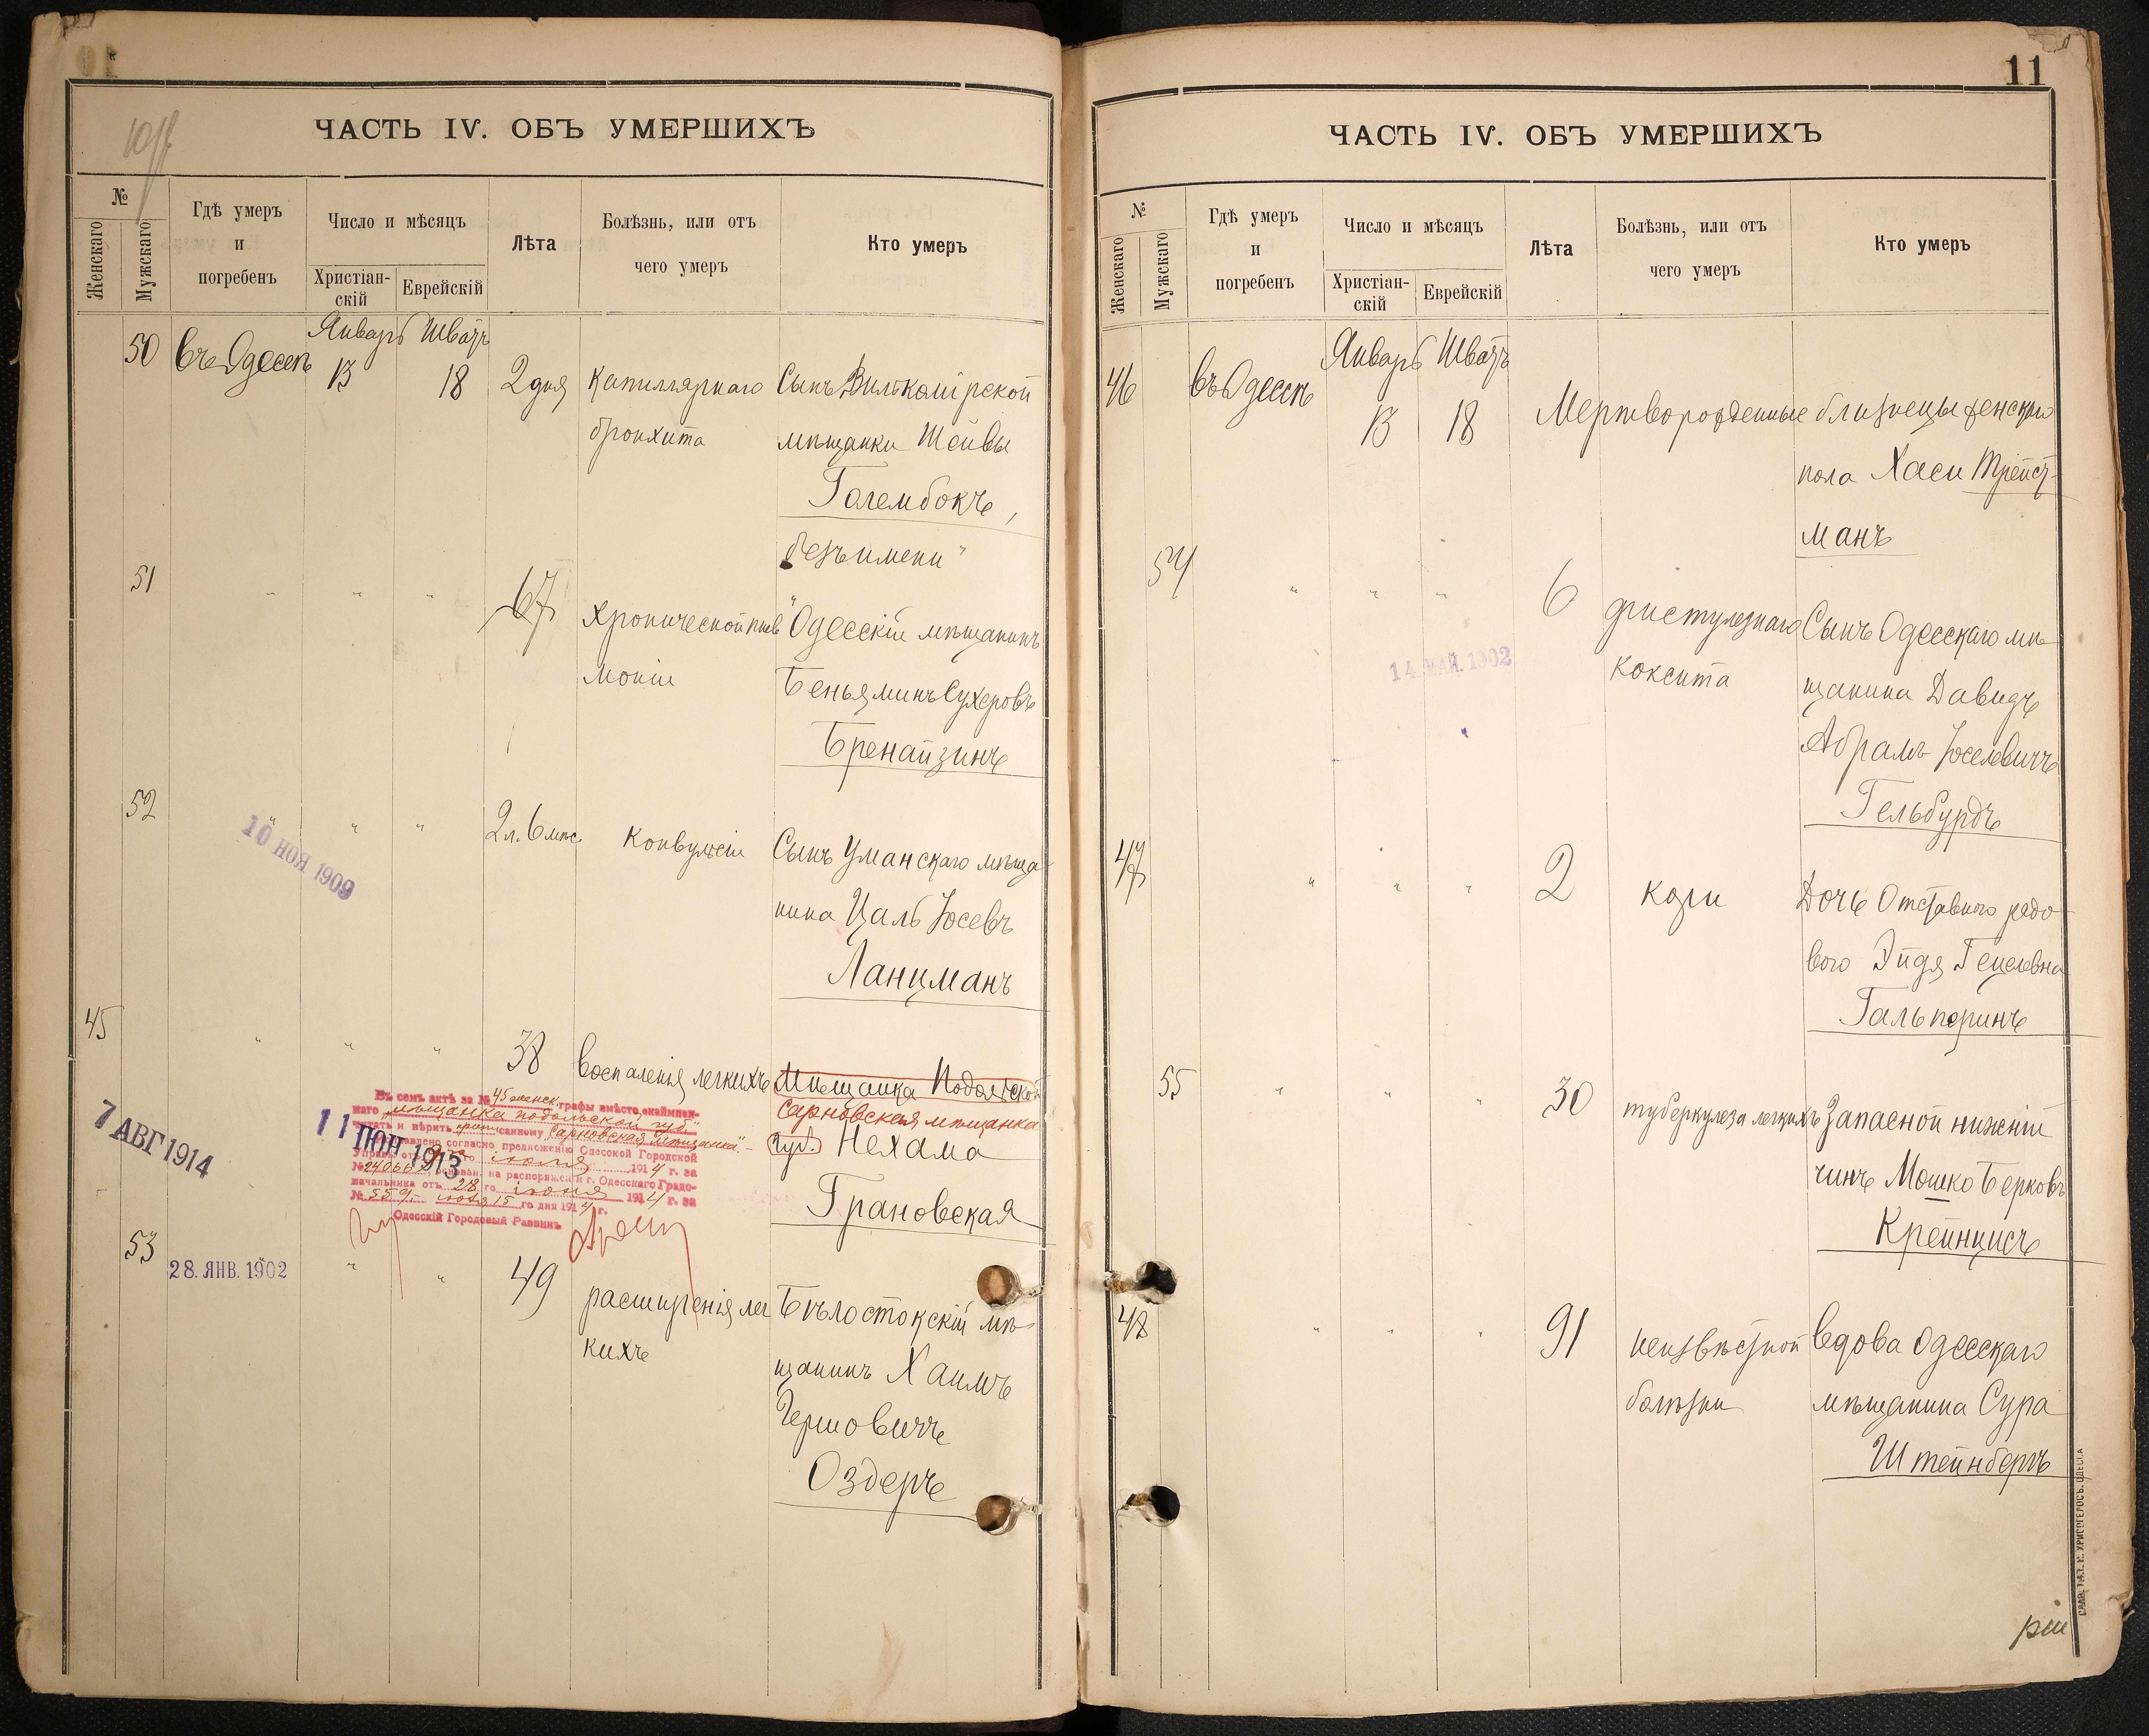 ЧАСТЬ IV. ОБЪ УМЕРШИХЪ
№
Женскаго
Мужскаго
Гдѣ умеръ
и
погребенъ
Число и мѣсяцъ
Христіан-
скій
Еврейскій
Лѣта
Болѣзнь, или отъ
чего умеръ
Кто умеръ
Январь Шватъ
50 въ Одессѣ 13 18 2 дня Капиллярнаго Сынъ Вилькомірской
бронхита мѣщанки Шейвы
Голембокъ,
безъимени"
51 " " " 67 Хронической пнев Одесскій мѣщанинъ
моніи Беньяминъ Сухеровъ
Бренайзинъ
52 " " " 2 л. 6 мѣс. Конвульсіи Сынъ Уманскаго мѣща
10 НОЯ 1909
нина Цаль Іосевъ
Ланцманъ
45 " " " 38 Воспаленія легкихъ Мѣщанка Подольской
Сарновская мѣщанка
губ. Нехама
Грановская
Въ семъ актѣ за № 45 женск. графы вмѣсто окаймлен-
наго „мѣщанка подольской губ."
читать и вѣрить приписанному „Сарновская мѣщанка".
согласно предложенію Одесской Городской
Управы отъ го іюля 1914 г. за
№ 24066 основан. на распоряженіи г. Одесскаго Градо-
начальника отъ 28 го іюня 1914 г. за
№ 559. іюля 15 го дня 1914 г.
Одесскій Городовый Раввинъ
7 АВГ 1914
11 ІЮН 1913
53 " " " 49 расширенія лег Бѣлостокскій мѣ
28. ЯНВ. 1902
кихъ щанинъ Хаимъ
Гершовичъ
Оздеръ
11
ЧАСТЬ IV. ОБЪ УМЕРШИХЪ
№
Женскаго
Мужскаго
Гдѣ умеръ
и
погребенъ
Число и мѣсяцъ
Христіан-
скій
Еврейскій
Лѣта
Болѣзнь, или отъ
чего умеръ
Кто умеръ
Январь Шватъ
46 въ Одессѣ 13 18 Мертворожденные близнецы женскаго
пола Хаси Трейст-
манъ
54 " " " 6 фистулезнаго Сынъ Одесскаго мѣ
14. МАЙ. 1902
коксита щанина Давидъ
Абрамъ Іоселевичъ
Гельбурдъ
47 " " " 2 кори Дочь Отставного рядо
вого Эйдя Гецелевна
Гальперинъ
55 " " " 30 туберкулеза легкихъ Запасной нижній
чинъ Мошко Берковъ
Крейнцисъ
48 " " " 91 неизвѣстной вдова Одесскаго
болѣзни мѣщанина Сура
Штейнбергъ
СЛАВ. ТИП. Н. ХРИСОГЕЛОСЪ. ОДЕССА